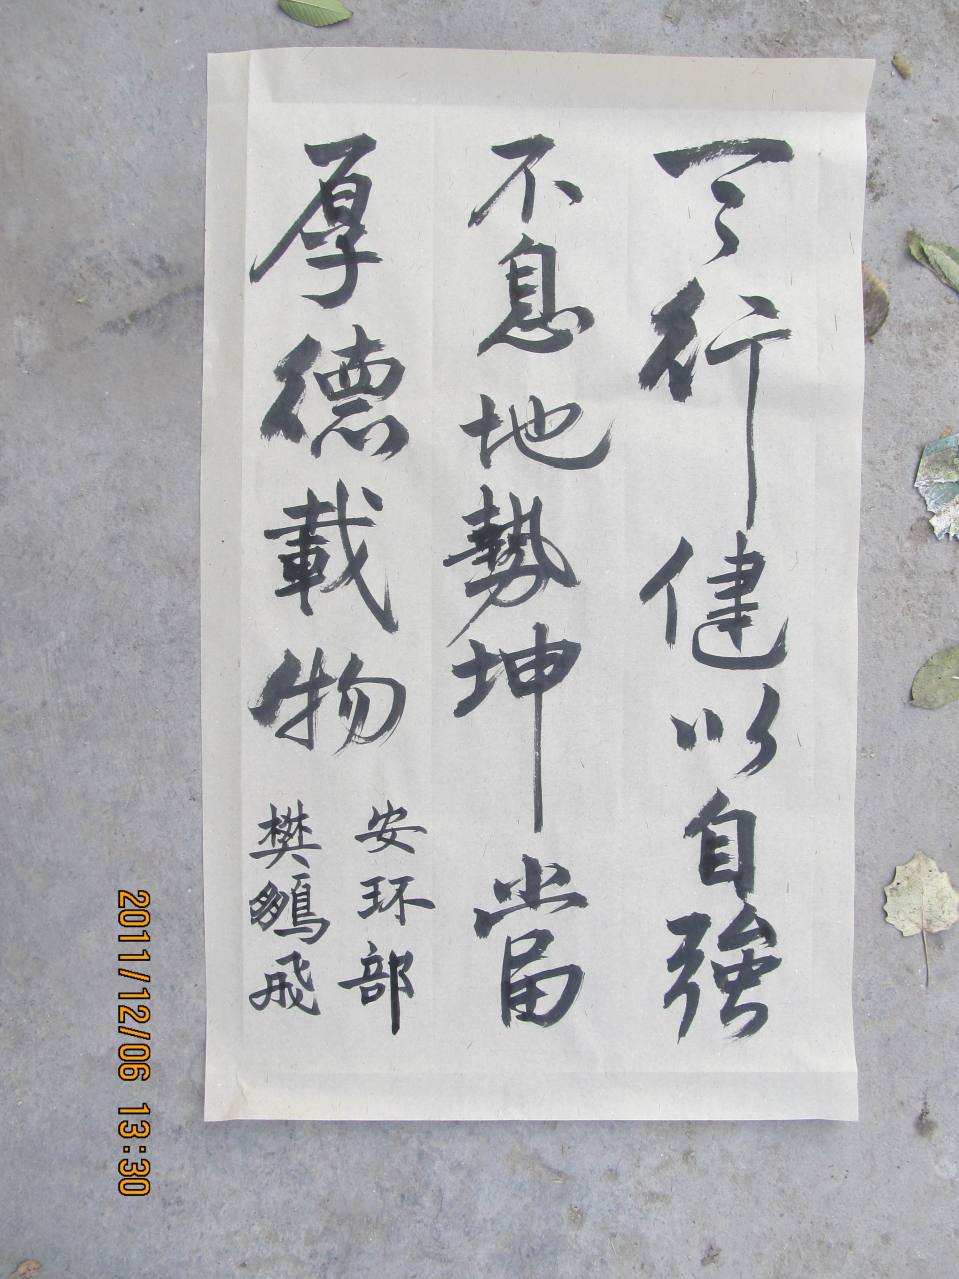 天行健以自強
不息地勢坤當
厚德載物
安环部
樊鵬飛
2011/12/06 13:30